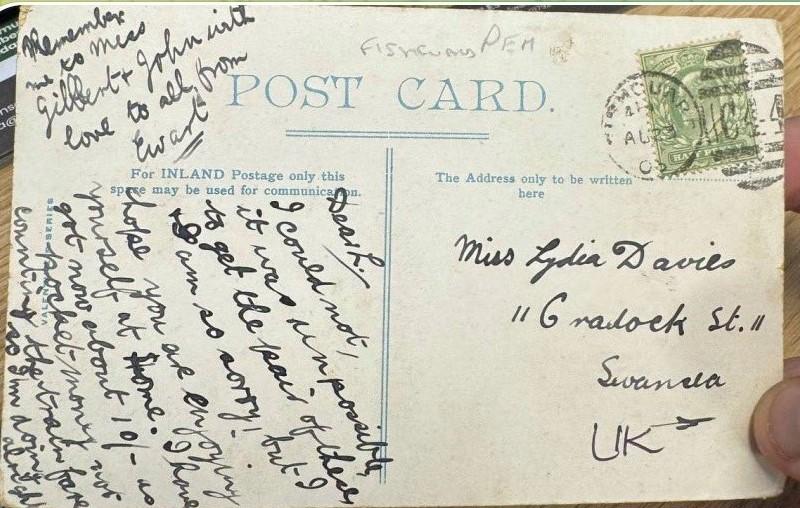 Remember
me to Miss
Gilbert + John with
love to all from
Ewart
FISHGUARD PEM
POST CARD.
For INLAND Postage only this
space may be used for communication.
The Address only to be written
here
Dear L.
I could not,
it was unpossible
to get the pair of these
I am so sorry! but I
hope you are enjoying
yourself at Home. I have
got now about 10/- as
pocket money not
counting the train fare
so I'm doing
alright
Miss Lydia Davies
11 Cradock St.
Swansea
UK
AU 23